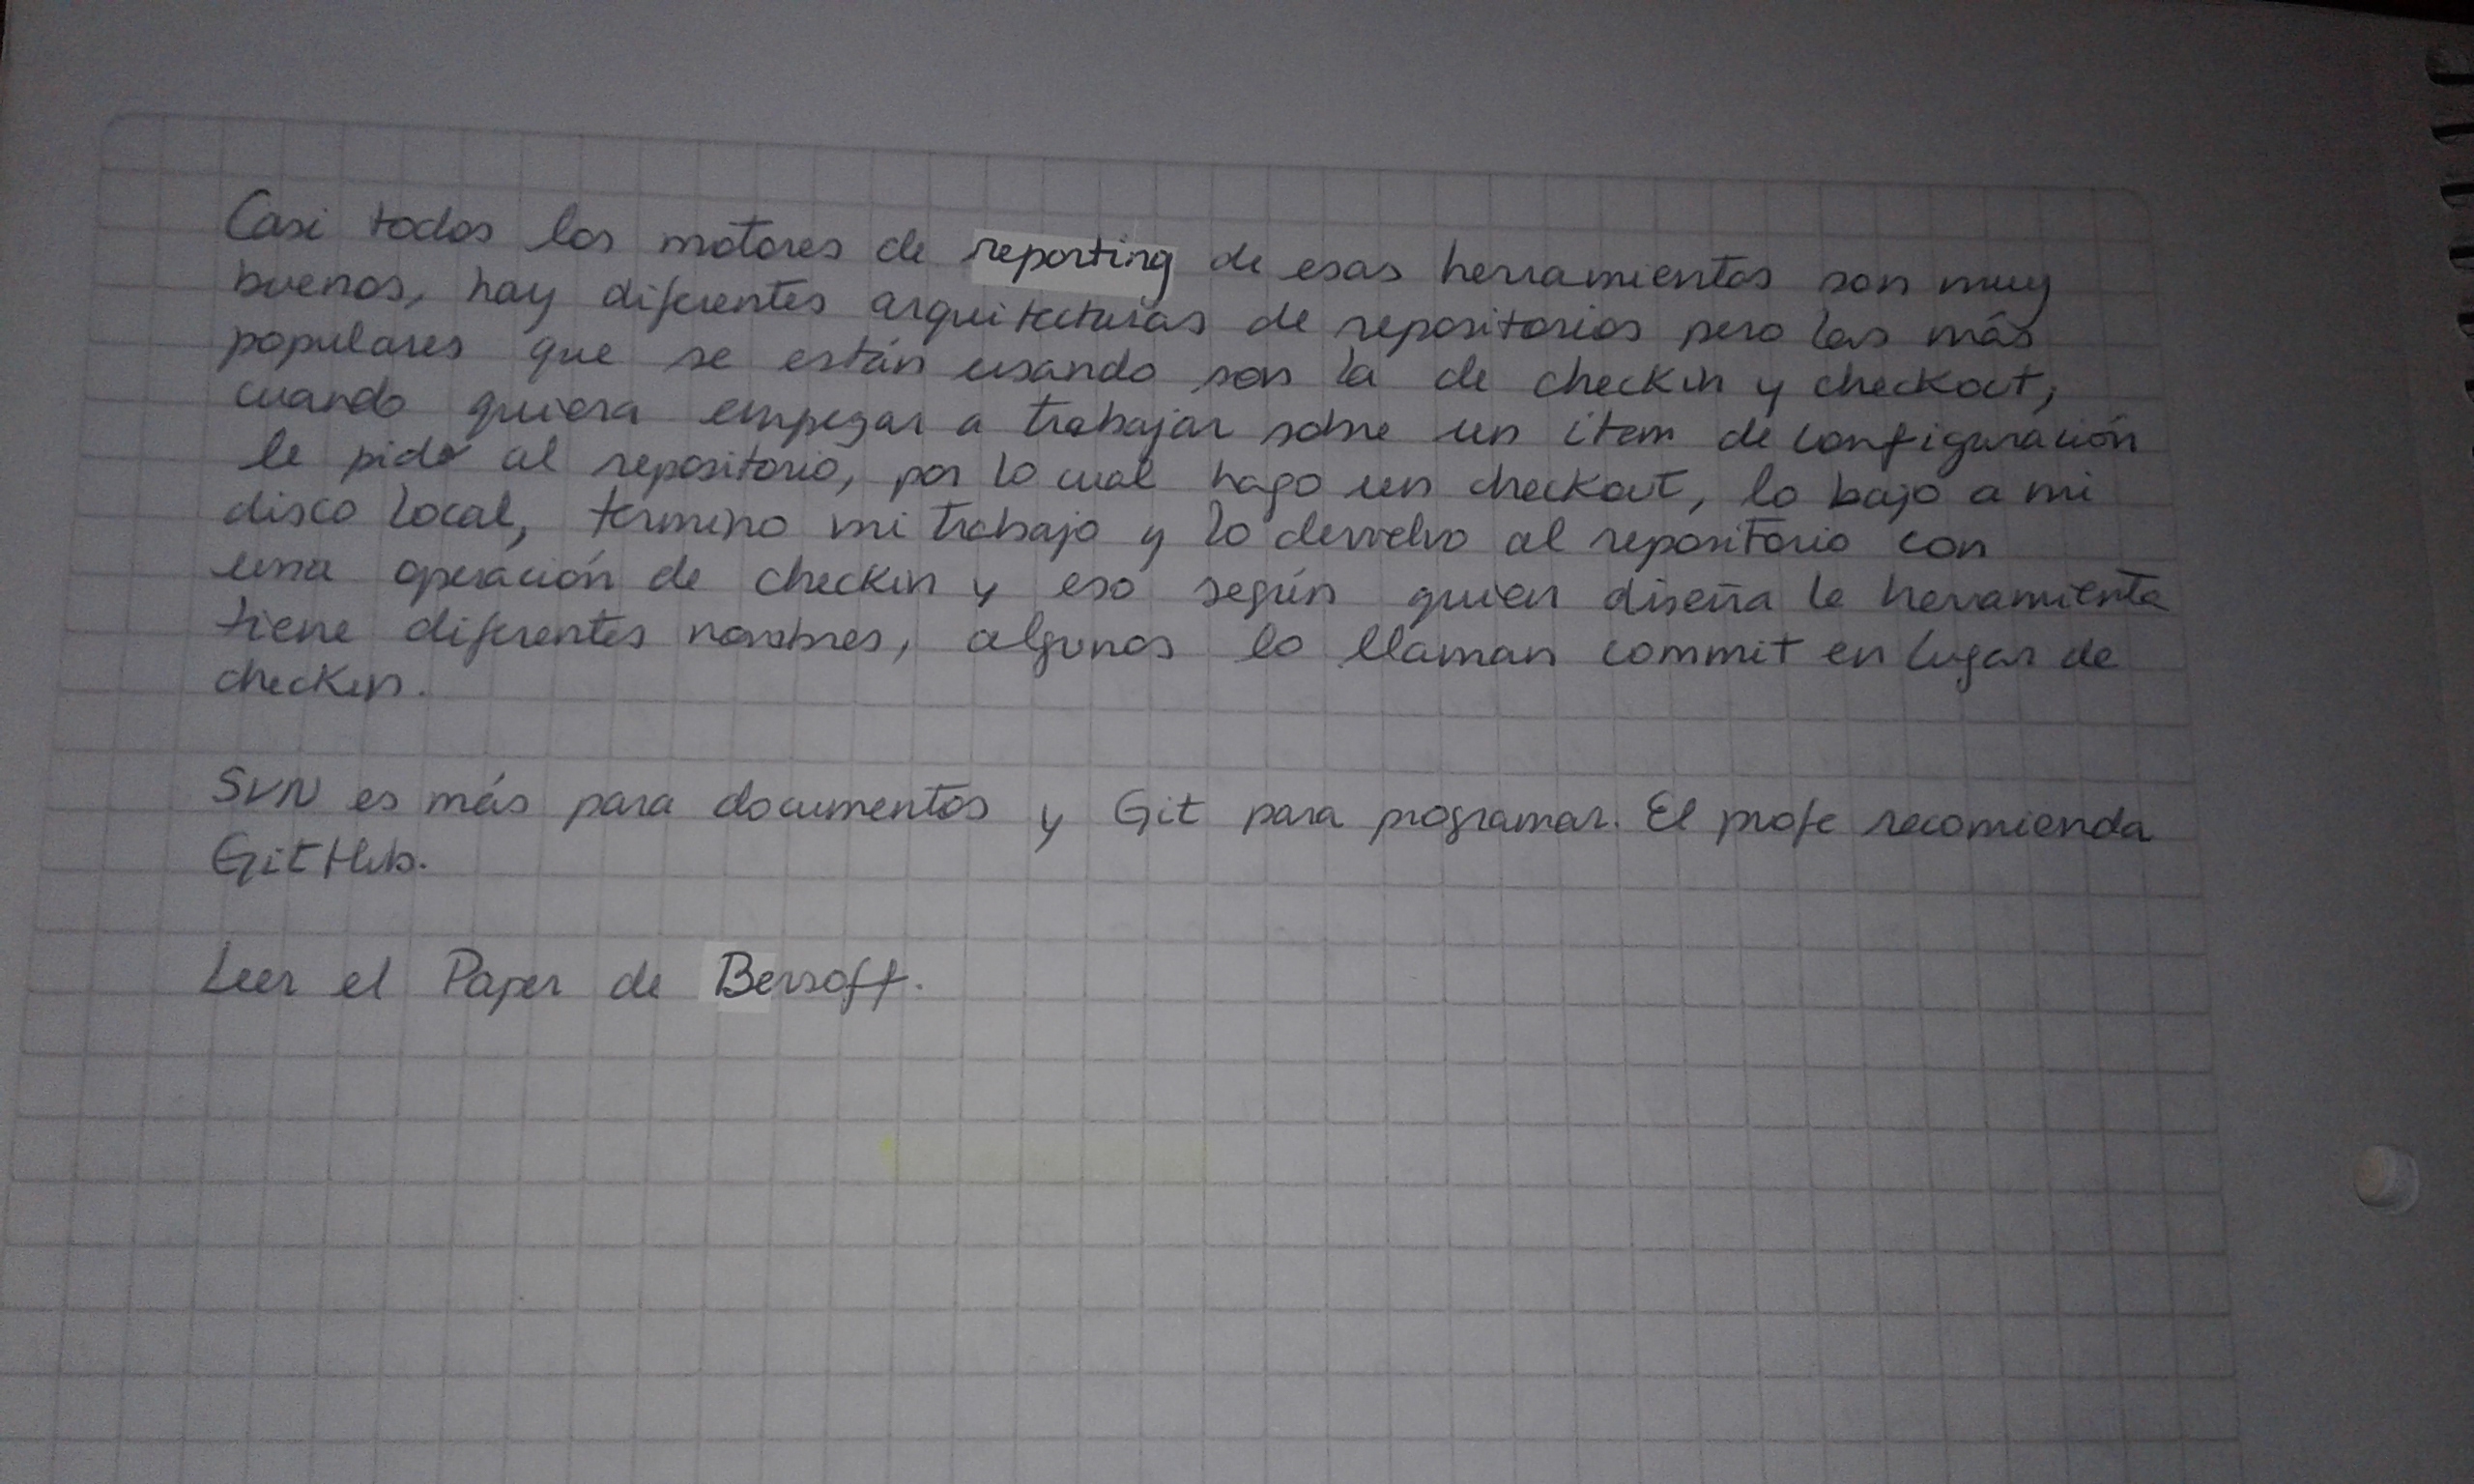 Casi todos los motores de reporting de esas herramientas son muy
buenos, hay diferentes arquitecturas de repositorios pero las más
populares que se están usando son la de checkin y checkout,
cuando quiera empezar a trabajar sobre un item de configuración
le pido al repositorio, por lo cual hago un checkout, lo bajo a mi
disco local, termino mi trabajo y lo devuelvo al repositorio con
una operación de checkin y eso según quien diseña la herramienta
tiene diferentes nombres, algunos lo llaman commit en lugar de
checkin.
SVN es más para documentos y Git para programar. El profe recomienda
GitHub.
Leer el Paper de Bersoff.